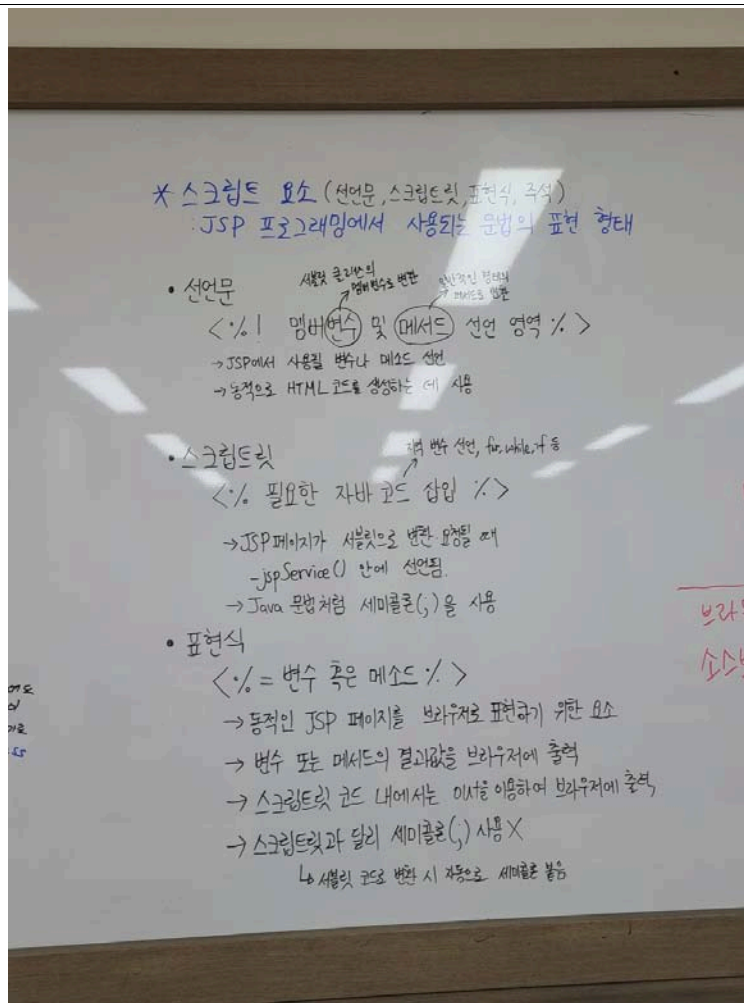 * 스크립트 요소 (선언문, 스크립트릿, 표현식, 주석)
: JSP 프로그래밍에서 사용되는 문법의 표현 형태
• 선언문
서블릿 클래스의
멤버변수로 변환
일반적인 형태의
메서드로 변환
<%! 멤버변수 및 메서드 선언 영역 %>
→ JSP에서 사용될 변수나 메소드 선언
→ 동적으로 HTML 코드를 생성하는 데 사용
• 스크립트릿
지역 변수 선언, for, while, if 등
<% 필요한 자바 코드 삽입 %>
→ JSP 페이지가 서블릿으로 변환 요청될 때
_jspService() 안에 선언됨.
→ Java 문법처럼 세미콜론(;)을 사용
• 표현식
<%= 변수 혹은 메소드 %>
→ 동적인 JSP 페이지를 브라우저로 표현하기 위한 요소
→ 변수 또는 메서드의 결과값을 브라우저에 출력
→ 스크립트릿 코드 내에서는 이용하여 브라우저에 출력
→ 스크립트릿과 달리 세미콜론(;) 사용 X
↳ 서블릿 코드로 변환 시 자동으로 세미콜론 붙음
브라